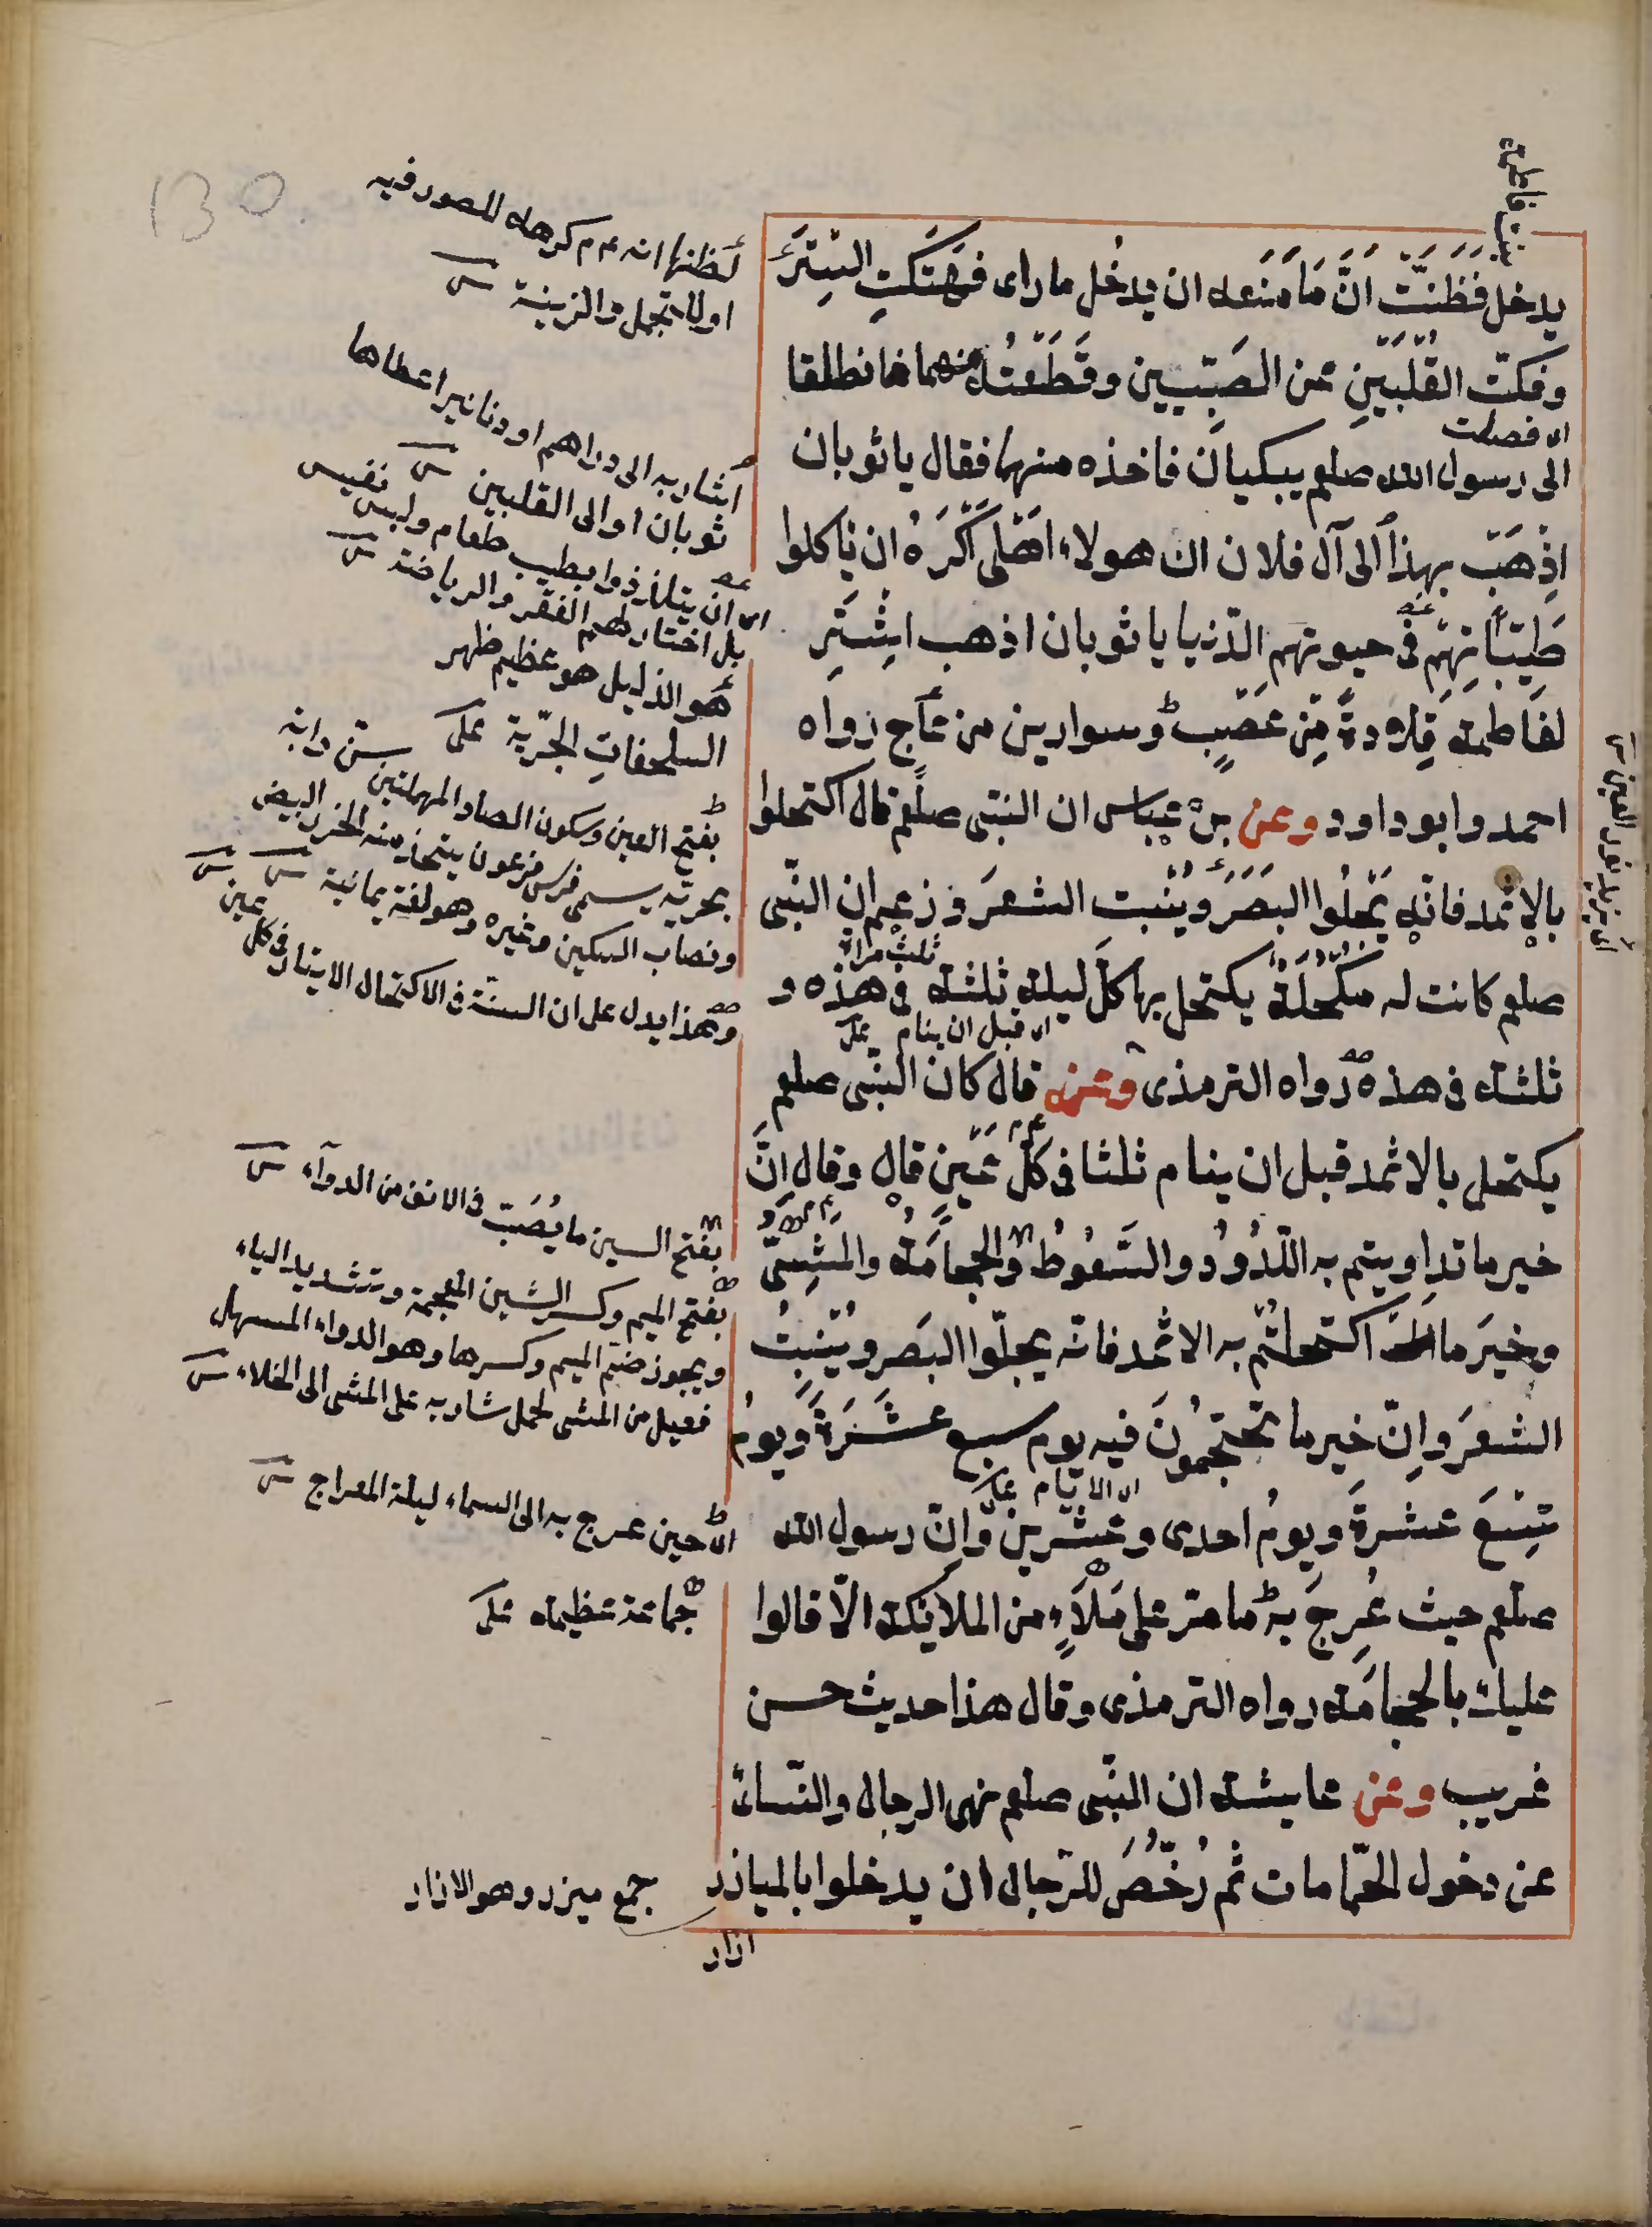 130
بنت فاطمة
يدخل فظَنَّتْ اَنَّ مَا مَنَعه ان يدخُل ما راى فهَتَكَتِ السِّتْرَ
وفكّت القُلْبَيْنِ عن الصَبِّيين وقَطَعَتْه منهما فانطلقا
اى فصلت
الى رسول الله صلعم يبكيان فاخذه منهما فقال يا ثوبان
اِذْهَبْ بهذا الى آل فلان ان هولاء اهْلى اَكْرَهُ ان ياكلوا
طَيِّبَاتِهِمْ فى حيوتهم الدّنيا يا ثوبان اذهب اشْتَرِ
لفاطمة قِلادةً مِن عَصْبٍ وسوارين من عَاج رواه
احمد وابو داود وعن بن عباس ان النبّى صلعم قال اكتحلوا
بالاِثمد فانّه يَجْلُوا البَصَرَ ويُنْبت الشعرَ وزعم ان النبّى
صلعم كانت له مُكْحُلَةٌ يكتحل بها كلّ ليلة ثلثة فى هذه و
ثلث مرات
ثلثة فى هذه رواه الترمذى وعنه قال كان النبّى صلعم
اى قبل ان ينام على
يكتحل بالاثمد قبل ان ينام ثلثا فى كلّ عَيْنٍ قال وقال اِنَّ
خير ما تداويتم به اللّدُوْدُ والسَّعُوْطُ والحِجامَة والمَشِىّ
وخيرَ ما اكتحلتُمْ به الاثمد فانّه يجلّوا البَصَر ويُنْبِتُ
الشعَرَ واِنّ خير ما تحْتَجِمُوْنَ فيه يوم سبع عَشَرَةَ ويومُ
تِسْعَ عشرةَ ويومُ احدى وعشرين واِنّ رسول الله
اى الايام على
صلعم حيث عُرِجَ به ما مرّ على مَلَأٍ من الملائكة الاّ قالوا
عليك بالحجامَة رواه الترمذى وقال هذا حديث حسن
غريب وعن عايشة ان النبّى صلعم نهى الرجال والنّساء
عن دخول الحمّامات ثم رُخّصَ للرّجال ان يدخلوا بالميازر
ازار
لظنها انه عم كرهه للصور فيه
او للتجمل والزينة
اشار به الى دراهم او دنانير اعطاها
ثوبان او الى القلبين
اى ان يتلذذوا بطيب طعام ولبس نفيس
بل اختار لهم الفقر والرياضة
هو الذبل هو عظيم ظهر
السلحفات البحرّية على
بفتح العين وسكون الصاد المهملتين سن دابة
بحريّة يسمى فرس فرعون يتخذ منه الخرز البيض
ونصاب السكين وغيره وهو لغة يمانية
وهذا يدل على ان السنة فى الاكتحال الايتار فى كل عين
بفتح السين ما يُصَبّ فى الانف من الدوآء
بفتح الميم وكسر الشين المعجمة وتشديد الياء
ويجوز ضمّ الميم وكسرها وهو الدواء المسهل
فعيل من المشى لحمل شاربه على المشى الى الخلاء
اى حين عرج به الى السماء ليلة المعراج
جماعة عظيمة على
جمع ميزر وهو الازار